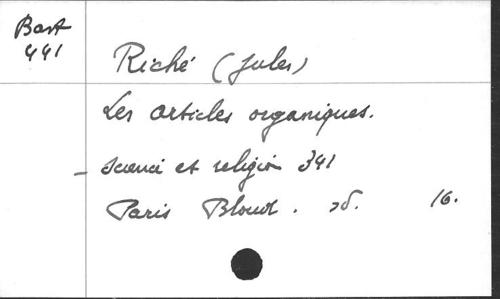 Bast
441
Riché (Jules)
Les articles organiques.
- Science et religion 341
Paris Bloud. sd. 16.